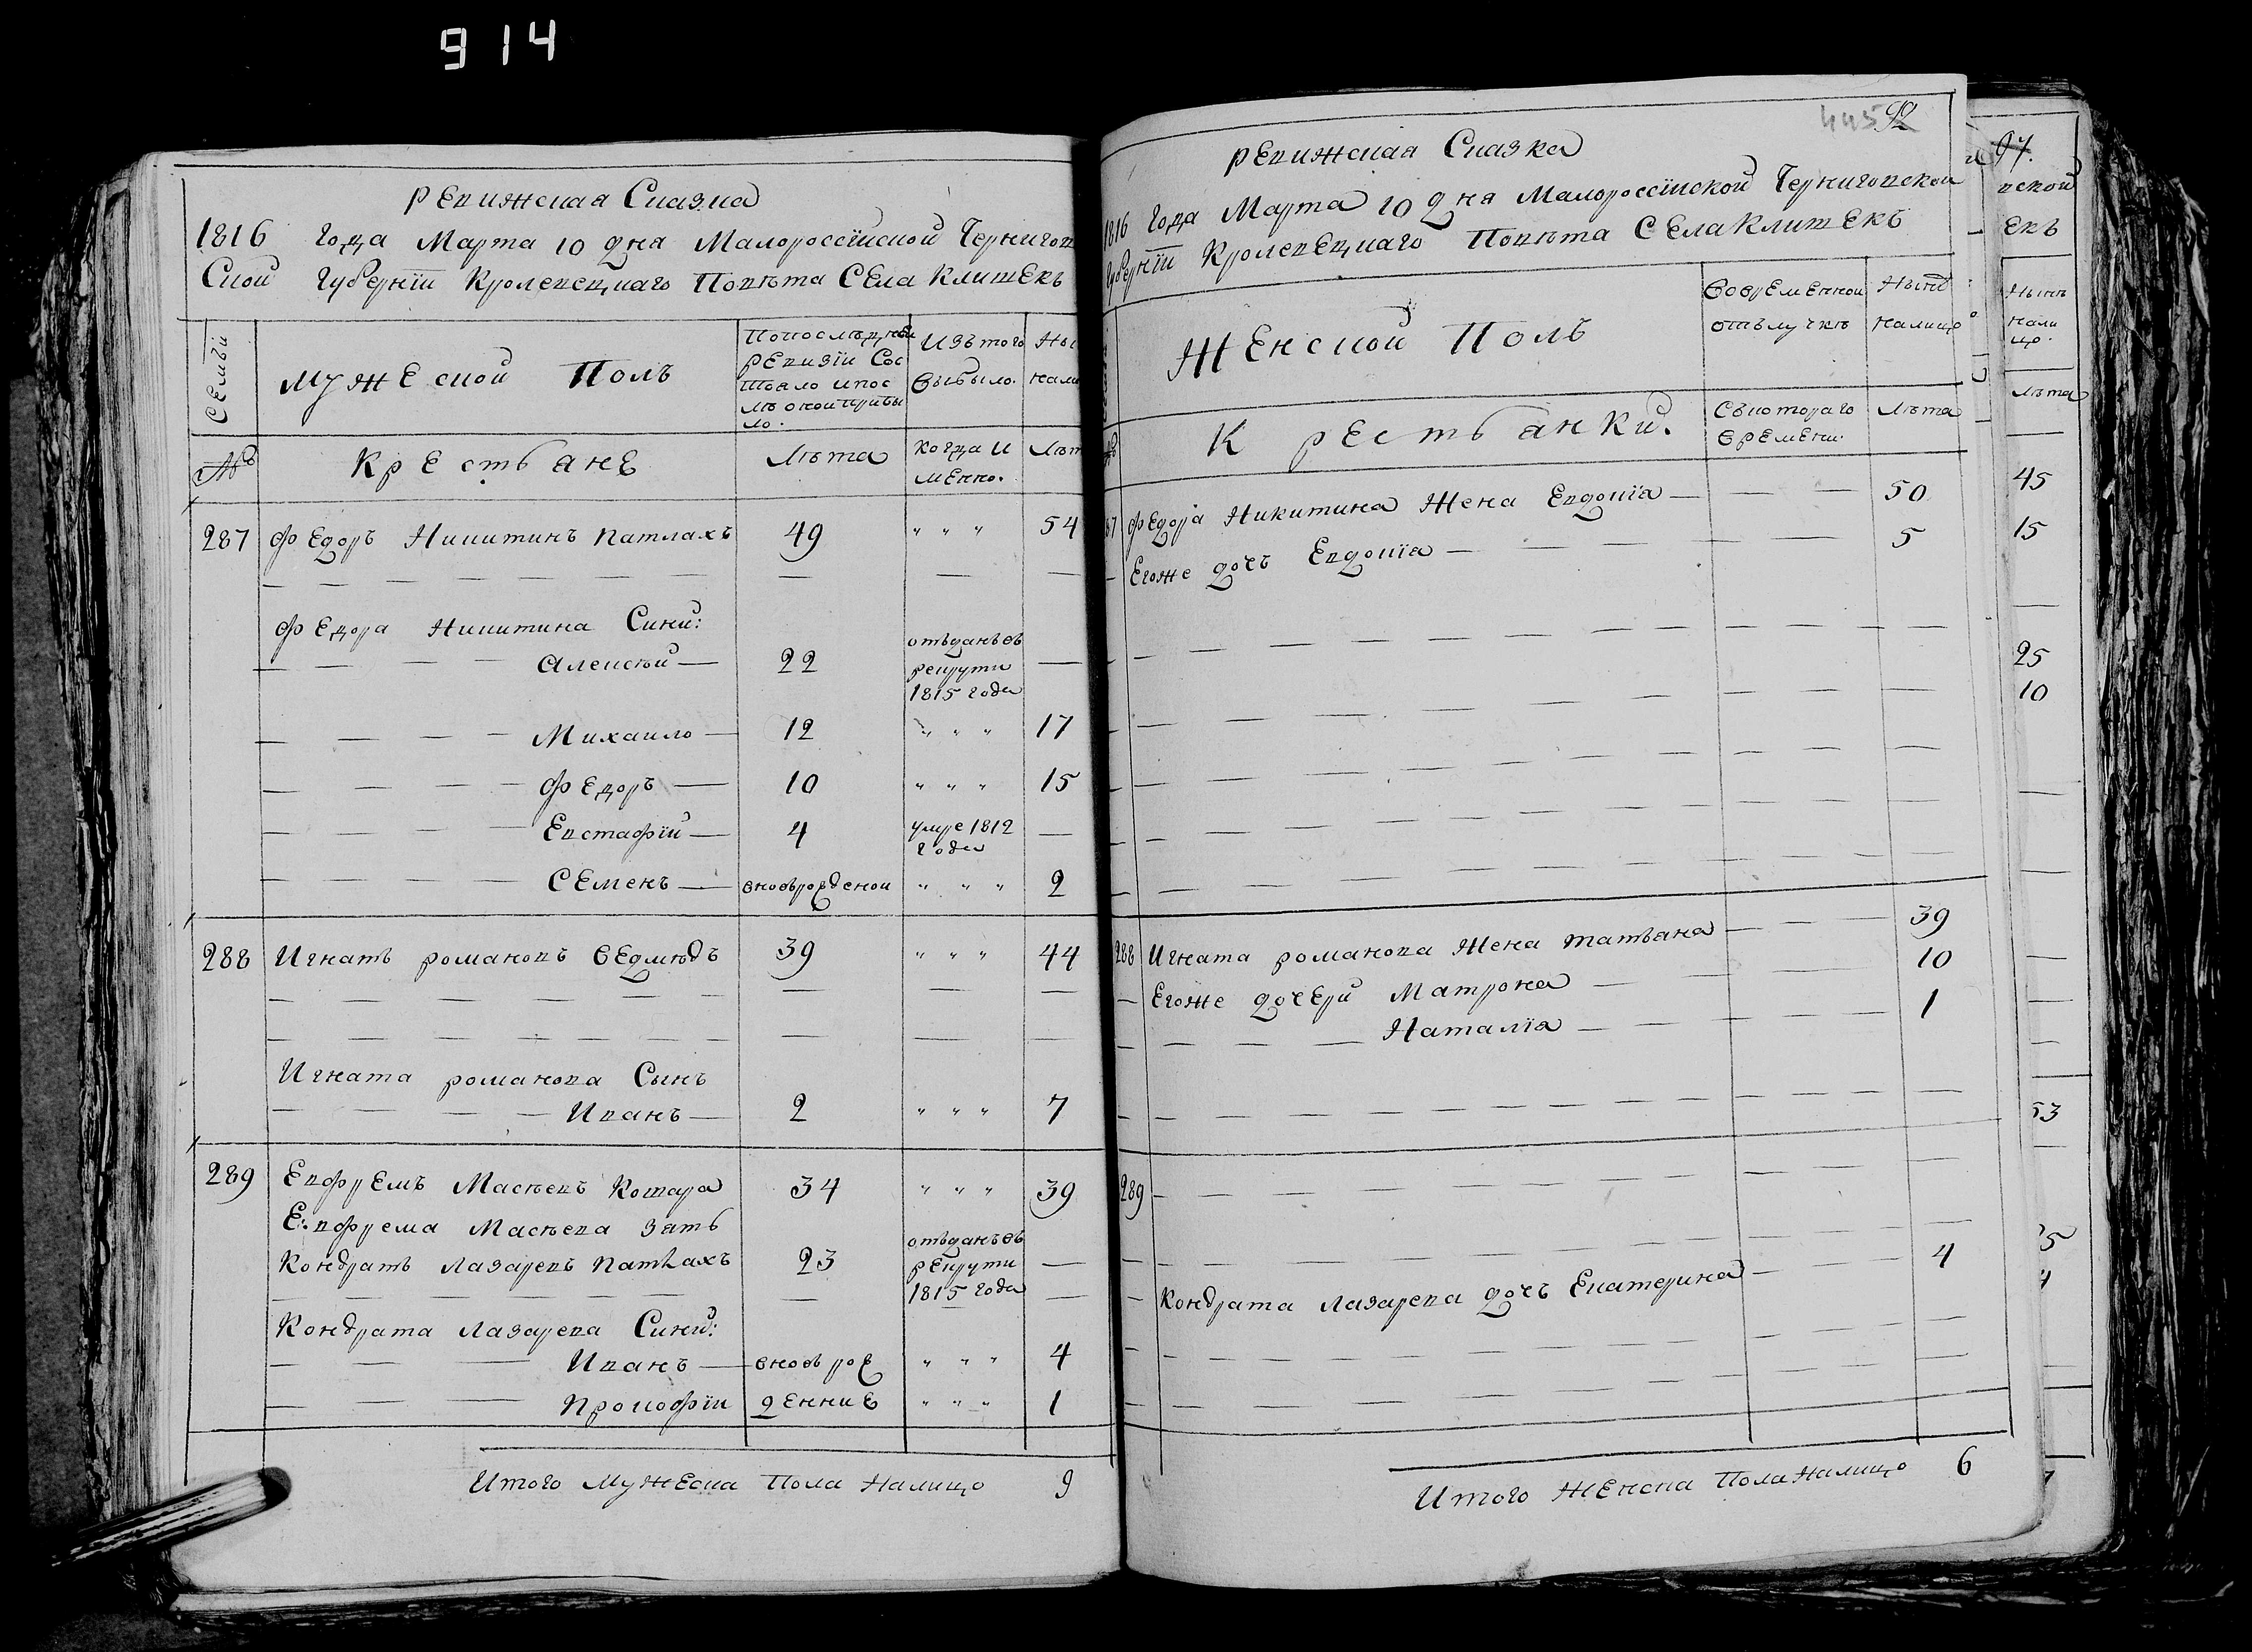 914
Ревижская Сказка
1816 года Марта 10 дня Малороссїйской Чернигов
Ской губернїи Кролевецкаго Повѣта Села Клишекъ
Семьи
Мужеской Полъ
Попослѣдней
ревизїи Сос
тояло ипос
лѣ оной прибы
ло.
Изътого
выбыло.
Ны
нали
№
Крестьяне
Лѣта
Когда и
менно.
Лѣт
287 Федоръ Никитинъ Патлахъ 49 " " " 54
Федора Никитина Сини:
Алексѣй 22 отъданъвъ рекрути 1815 года
Михайло 12 " " " 17
Федоръ 10 " " " 15
Евстафїй 4 умре 1812 года
Семенъ вновьрожденои " " " 2
288 Игнатъ романовъ Ведмѣдъ 39 " " " 44
Игната романова Сынъ
Иванъ 2 " " " 7
289 Евфремъ Масѣевъ Котара 34 " " " 39
Евфрема Масѣева зять
Кондратъ лазаревъ Патлахъ 23 отъданъвъ рекрути 1815 года
Кондрата лазарева Сини:
Иванъ вновь рож " " " 4
Прокофїи денние " " " 1
Итого Мужеска Пола Налицо 9
445 92
Ревижская Сказка
1816 года Марта 10 дня Малороссїйской Черниговской
губернїи Кролевецкаго Повѣта Села Клишекъ
Женской Полъ
Вовременной
отълучкѣ
Нынѣ
налицо
Крестьянки.
Съкотораго
времени.
Лѣта
87 Федора Никитина Жена Евдокїа 50
Егоже дочъ Евдокїа 5
288 Игната романова Жена татьана 39
Егоже дочери Матрона 10
Наталїа 1
289
Кондрата лазарева дочъ Екатерина 4
Итого Женска Пола Налицо 6
97.
вской
екъ
Нынѣ
нали
цо.
Лѣта
45
15
25
10
53